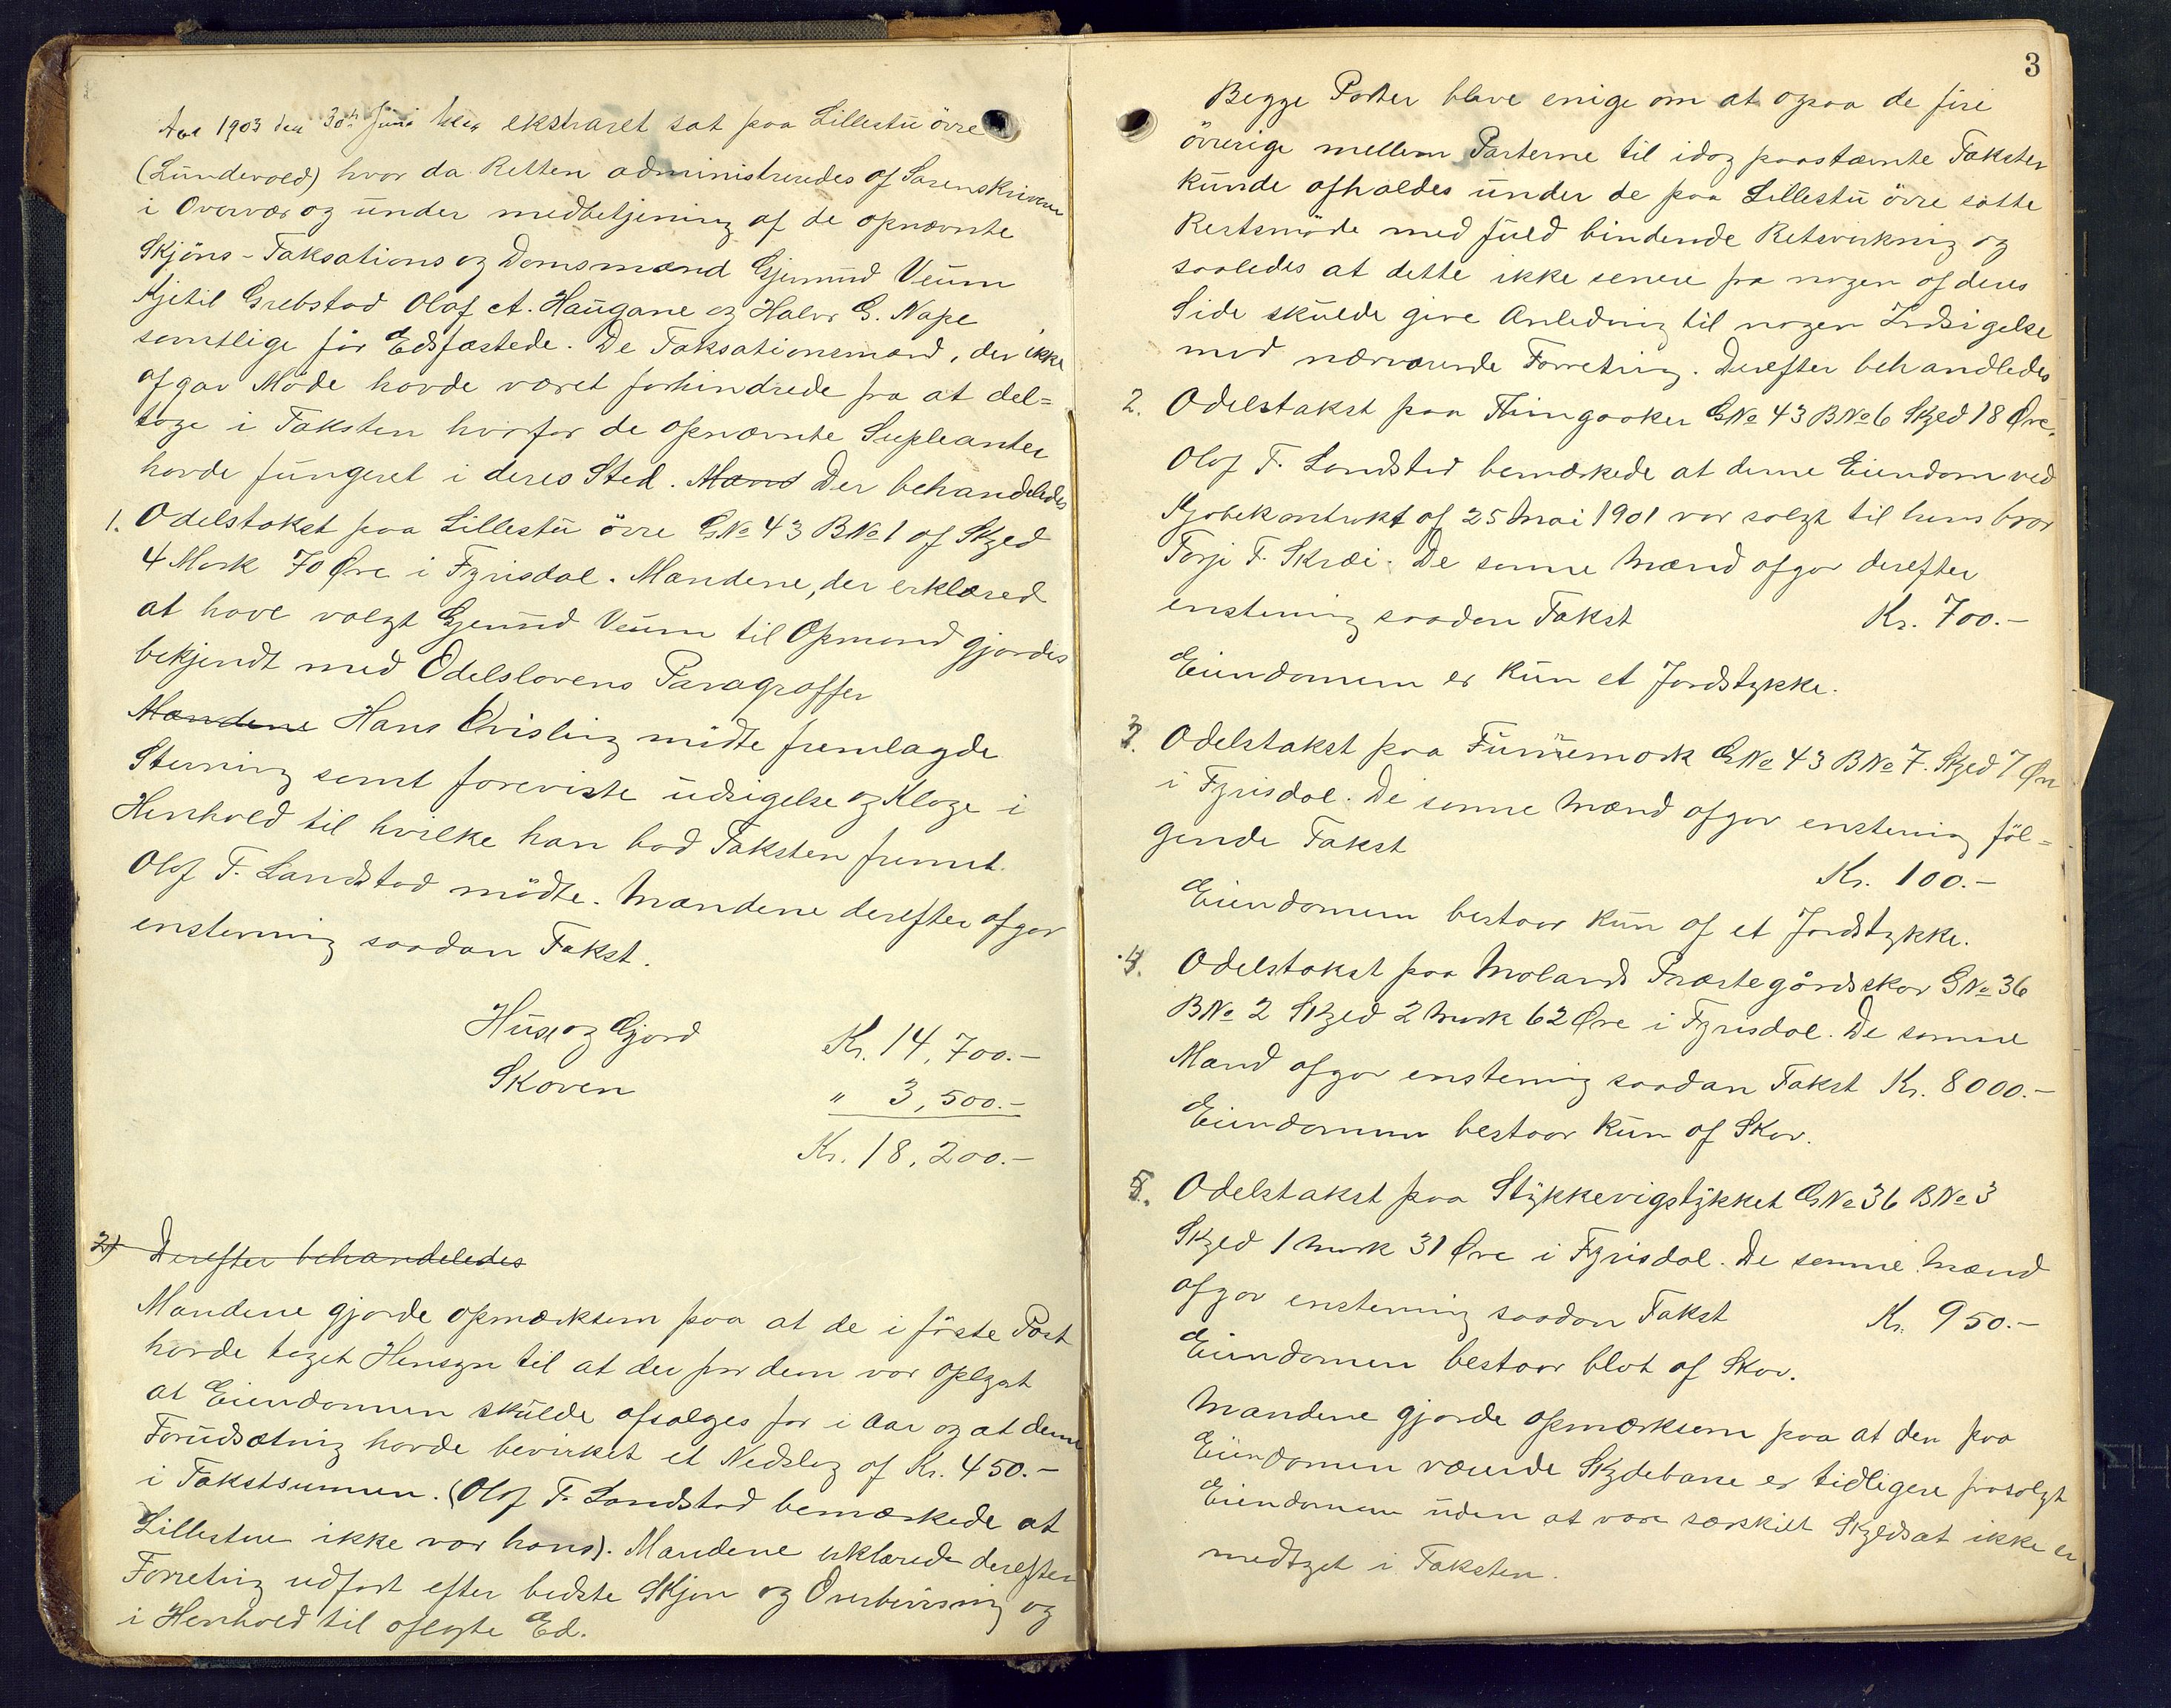 Aar 1903 den 30te Juni blev ekstraret sat paa Lillestu övre
(Lundevold) hvor da Retten administreredes af Sorenskriveren
i Overvær og under medbetjening af de opnævnte
Skjöns-Taksations og Domsmænd Gjermund Veum
Kjetil Grebstad Olaf A. Haugane og Halvor G. Nape
samtlige før Edsfæstede. De Taksationsmænd, der ikke
afgav Møde havde været forhindrede fra at del=
tage i Taksten hvorfor de opnævnte Supleanter
havde fungeret i deres Sted. Mænd Der behandledes
1. Odelstakst paa Lillestu övre GNo 43 BNo 1 af Skyld
4 Mark 70 Øre i Fyrisdal. Mændene, der erklæred
at have valgt Gjermund Veum til Opmand gjordes
bekjendt med Odelslovens Paragraffer
Mændene Hans Qvisling mödte fremlagde
Stevning samt foreviste udsigelse og Klage i
Henhold til hvilke han bad Taksten fremmet.
Olaf T. Landstad mödte. Mændene derefter afgav
enstemmig saadan Takst.
Huse og Gjord Kr. 14,700.-
Skoven " 3,500.-
Kr. 18,200.-
2) Derefter behandeledes
Mændene gjorde opmærksom paa at de i förste Post
havde taget Hensyn til at der for dem var oplyst
at Eiendommen skulde afsælges for i Aar og at denne
Forudsætning havde bevirket et Nedslag af Kr. 450.-
i Takstsummen. (Olaf T. Landstad bemærkede at
Lillestu ikke var hans). Mændene erklærede derefter
Forretning udfört efter bedste Skjøn og Overbevisning og
i Henhold til aflagte Ed.
3
Begge Parter blev enige om at ogsaa de fire
övrige mellem Parterne til idag paastævnte Takster
kunde afholdes under de paa Lillestu övre satte
Rettsmöde med fuld bindende Retsvirkning og
saaledes at dette ikke senere fra nogen af deres
Side skulde give Anledning til nogen Indsigelse
mod nærværende Forretning. Derefter behandledes
2. Odelstakst paa Thingaaker GNo 43 BNo 6 Skyld 18 Øre.
Olaf T. Landstad bemærkede at denne Eiendom ved
Kjøbekontrakt af 25 Mai 1901 var solgt til hans bror
Torje T. Skræi. De samme Mænd afgav derefter
enstemmig saadan Takst Kr. 700.-
Eiendommen er kun et Jordstykke.
3. Odelstakst paa Funnemork GNo 43 BNo 7. Skyld 7 Øre
i Fyrisdal. De samme Mænd afgav enstemmig föl=
gende Takst Kr. 100.-
Eiendommen bestaar kun af et Jordstykke.
4. Odelstakst paa Molands Præstegårdsskov GNo 36
BNo 2 Skyld 2 Mark 62 Øre i Fyrisdal. De samme
Mænd afgav enstemmig saadan Takst Kr. 8000.-
Eiendommen bestaar kun af Skov.
5. Odelstakst paa Stykkevigstykket GNo 36 BNo 3
Skyld 1 Mark 31 Øre i Fyrisdal. De samme Mænd
afgav enstemmig saadan Takst Kr. 950.-
Eiendommen bestaar blot af Skov.
Mændene gjorde opmærksom paa at den paa
Eiendommen værende Skydebane er tidligere frasolgt
Eiendommen uden at være særskilt Skyldsat ikke er
medtaget i Taksten.